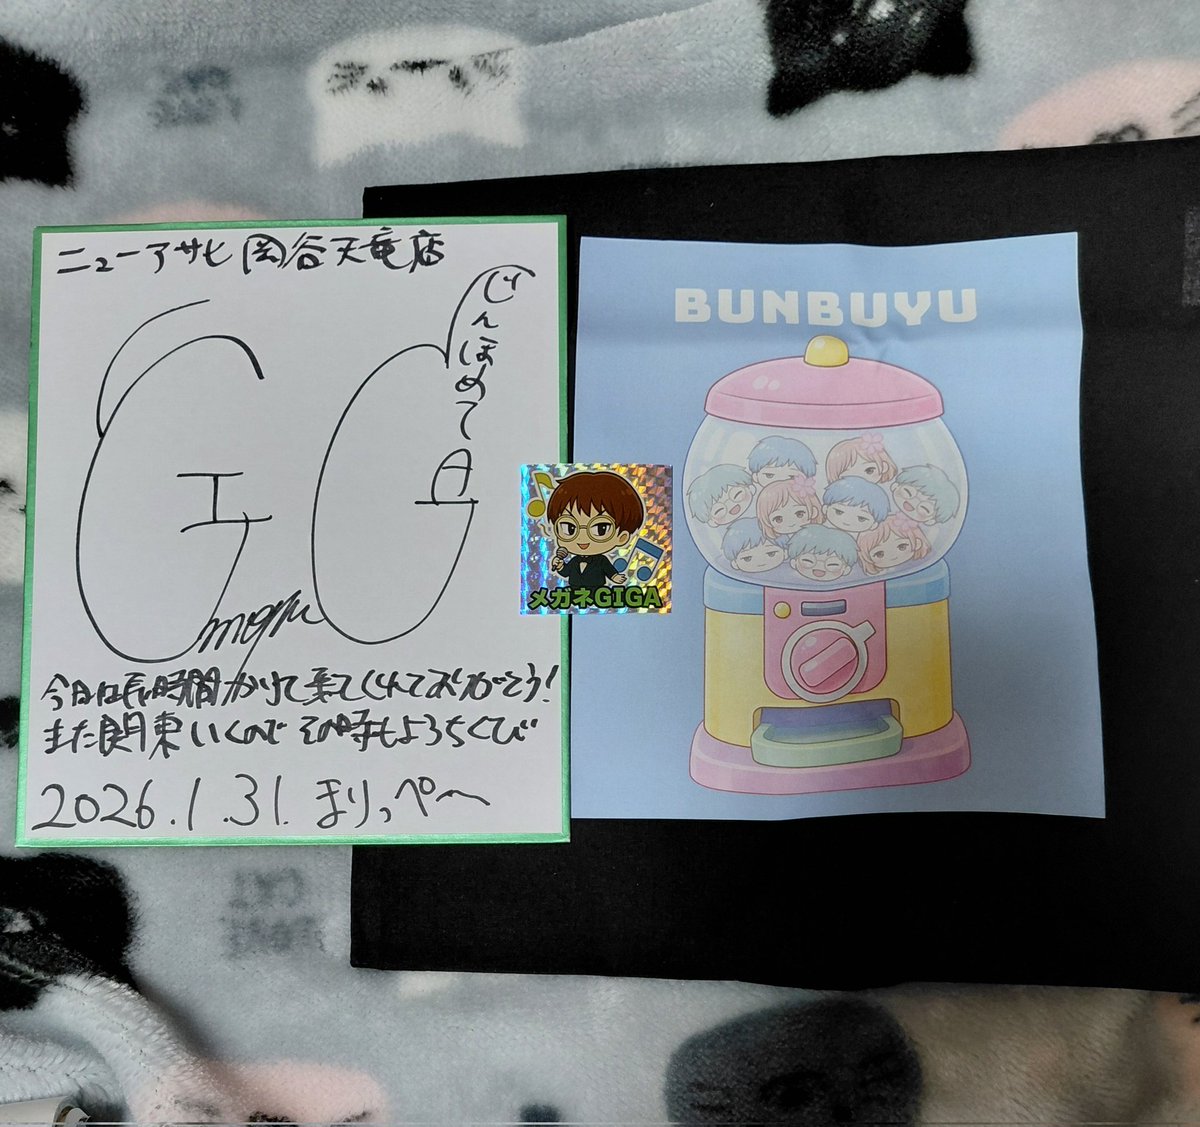 ニューアサヒ 岡谷天竜店
じんぼめて
GIGA
megane
今日は長時間かけて来てくれてありがとう!
また関東いくので その時もよろちくび
2026.1.31. まりっぺ〜
メガネGIGA
BUNBUYU